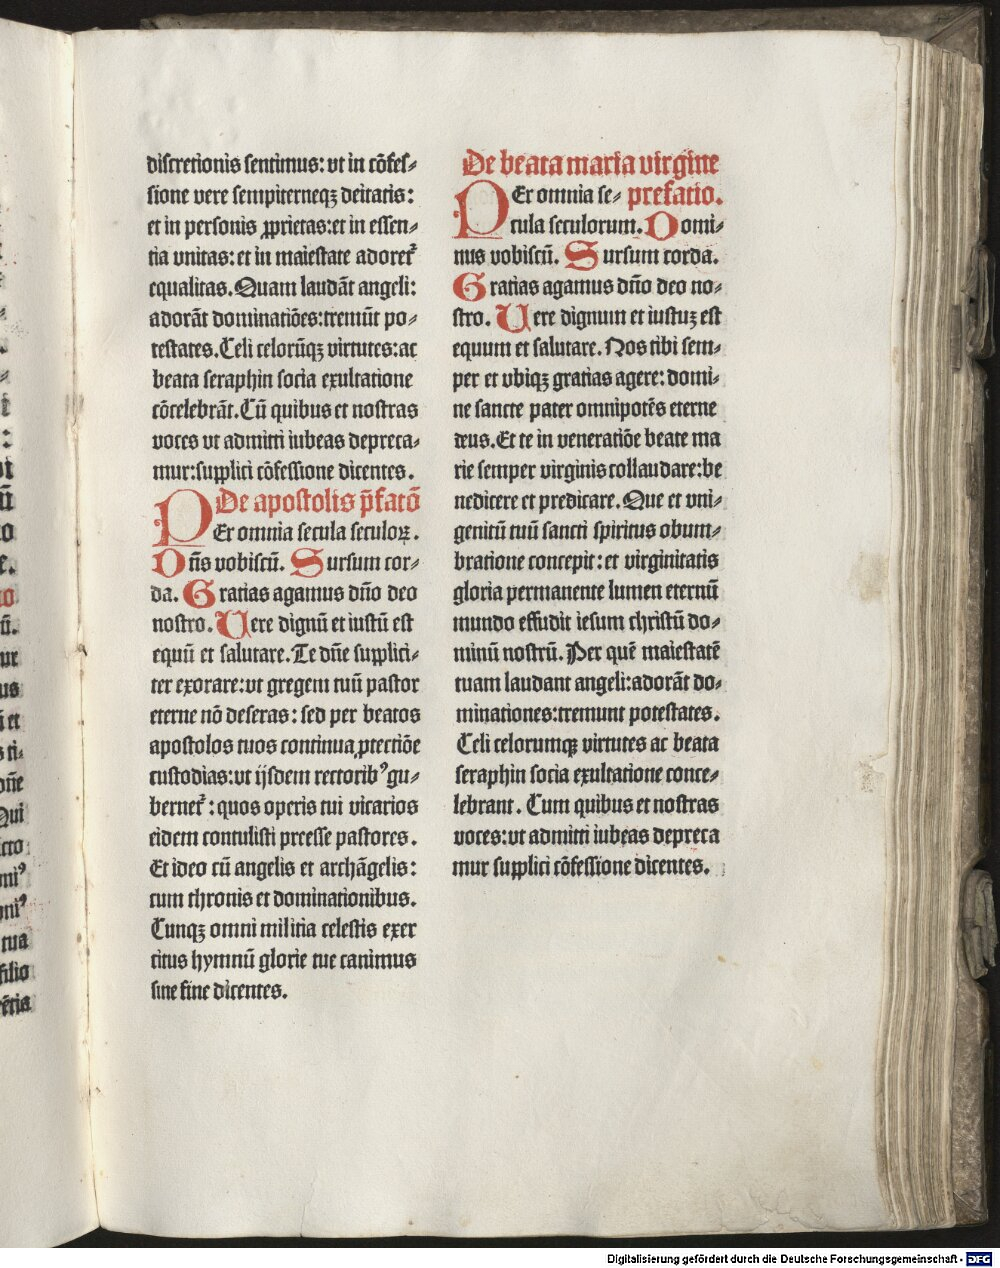 discretionis sentimus: vt in cōfes-
sione vere sempiterneqꝫ deitatis:
et in personis ꝓprietas: et in essen-
tia vnitas: et in maiestate adoretˀ
equalitas. Quam laudāt angeli:
adorāt dominatiōes: tremūt po-
testates. Celi celorūqꝫ virtutes: ac
beata seraphin socia exultatione
cōcelebrāt. Cū quibus et nostras
voces vt admitti iubeas depreca-
mur: supplici cōfessione dicentes.
De apostolis p̄fatō
PEr omnia secula seculoꝝ.
Dn̄s vobiscū. Sursum cor-
da. Gratias agamus dn̄o deo
nostro. Uere dignū et iustū est
equū et salutare. Te dn̄e supplici-
ter exorare: vt gregem tuū pastor
eterne nō deseras: sed per beatos
apostolos tuos continua ꝓtectiōe
custodias: vt ijsdem rectoribꝰ gu-
bernetˀ: quos operis tui vicarios
eidem contulisti preesse pastores.
Et ideo cū angelis et archāgelis:
cum thronis et dominationibus.
Cunqꝫ omni militia celestis exer
citus hymnū glorie tue canimus
sine fine dicentes.
De beata maria virgine
PEr omnia se- prefatio.
cula seculorum. Domi-
nus vobiscū. Sursum corda.
Gratias agamus dn̄o deo no-
stro. Uere dignum et iustuꝫ est
equum et salutare. Nos tibi sem-
per et vbiqꝫ gratias agere: domi-
ne sancte pater omnipotēs eterne
deus. Et te in veneratiōe beate ma
rie semper virginis collaudare: be
nedicere et predicare. Que et vni-
genitū tuū sancti spiritus obum-
bratione concepit: et virginitatis
gloria permanente lumen eternū
mundo effudit iesum christū do-
minū nostrū. Per quē maiestatē
tuam laudant angeli: adorāt do-
minationes: tremunt potestates.
Celi celorumqꝫ virtutes ac beata
seraphin socia exultatione conce-
lebrant. Cum quibus et nostras
voces: vt admitti iubeas depreca
mur supplici cōfessione dicentes.
Digitalisierung gefördert durch die Deutsche Forschungsgemeinschaft - DFG